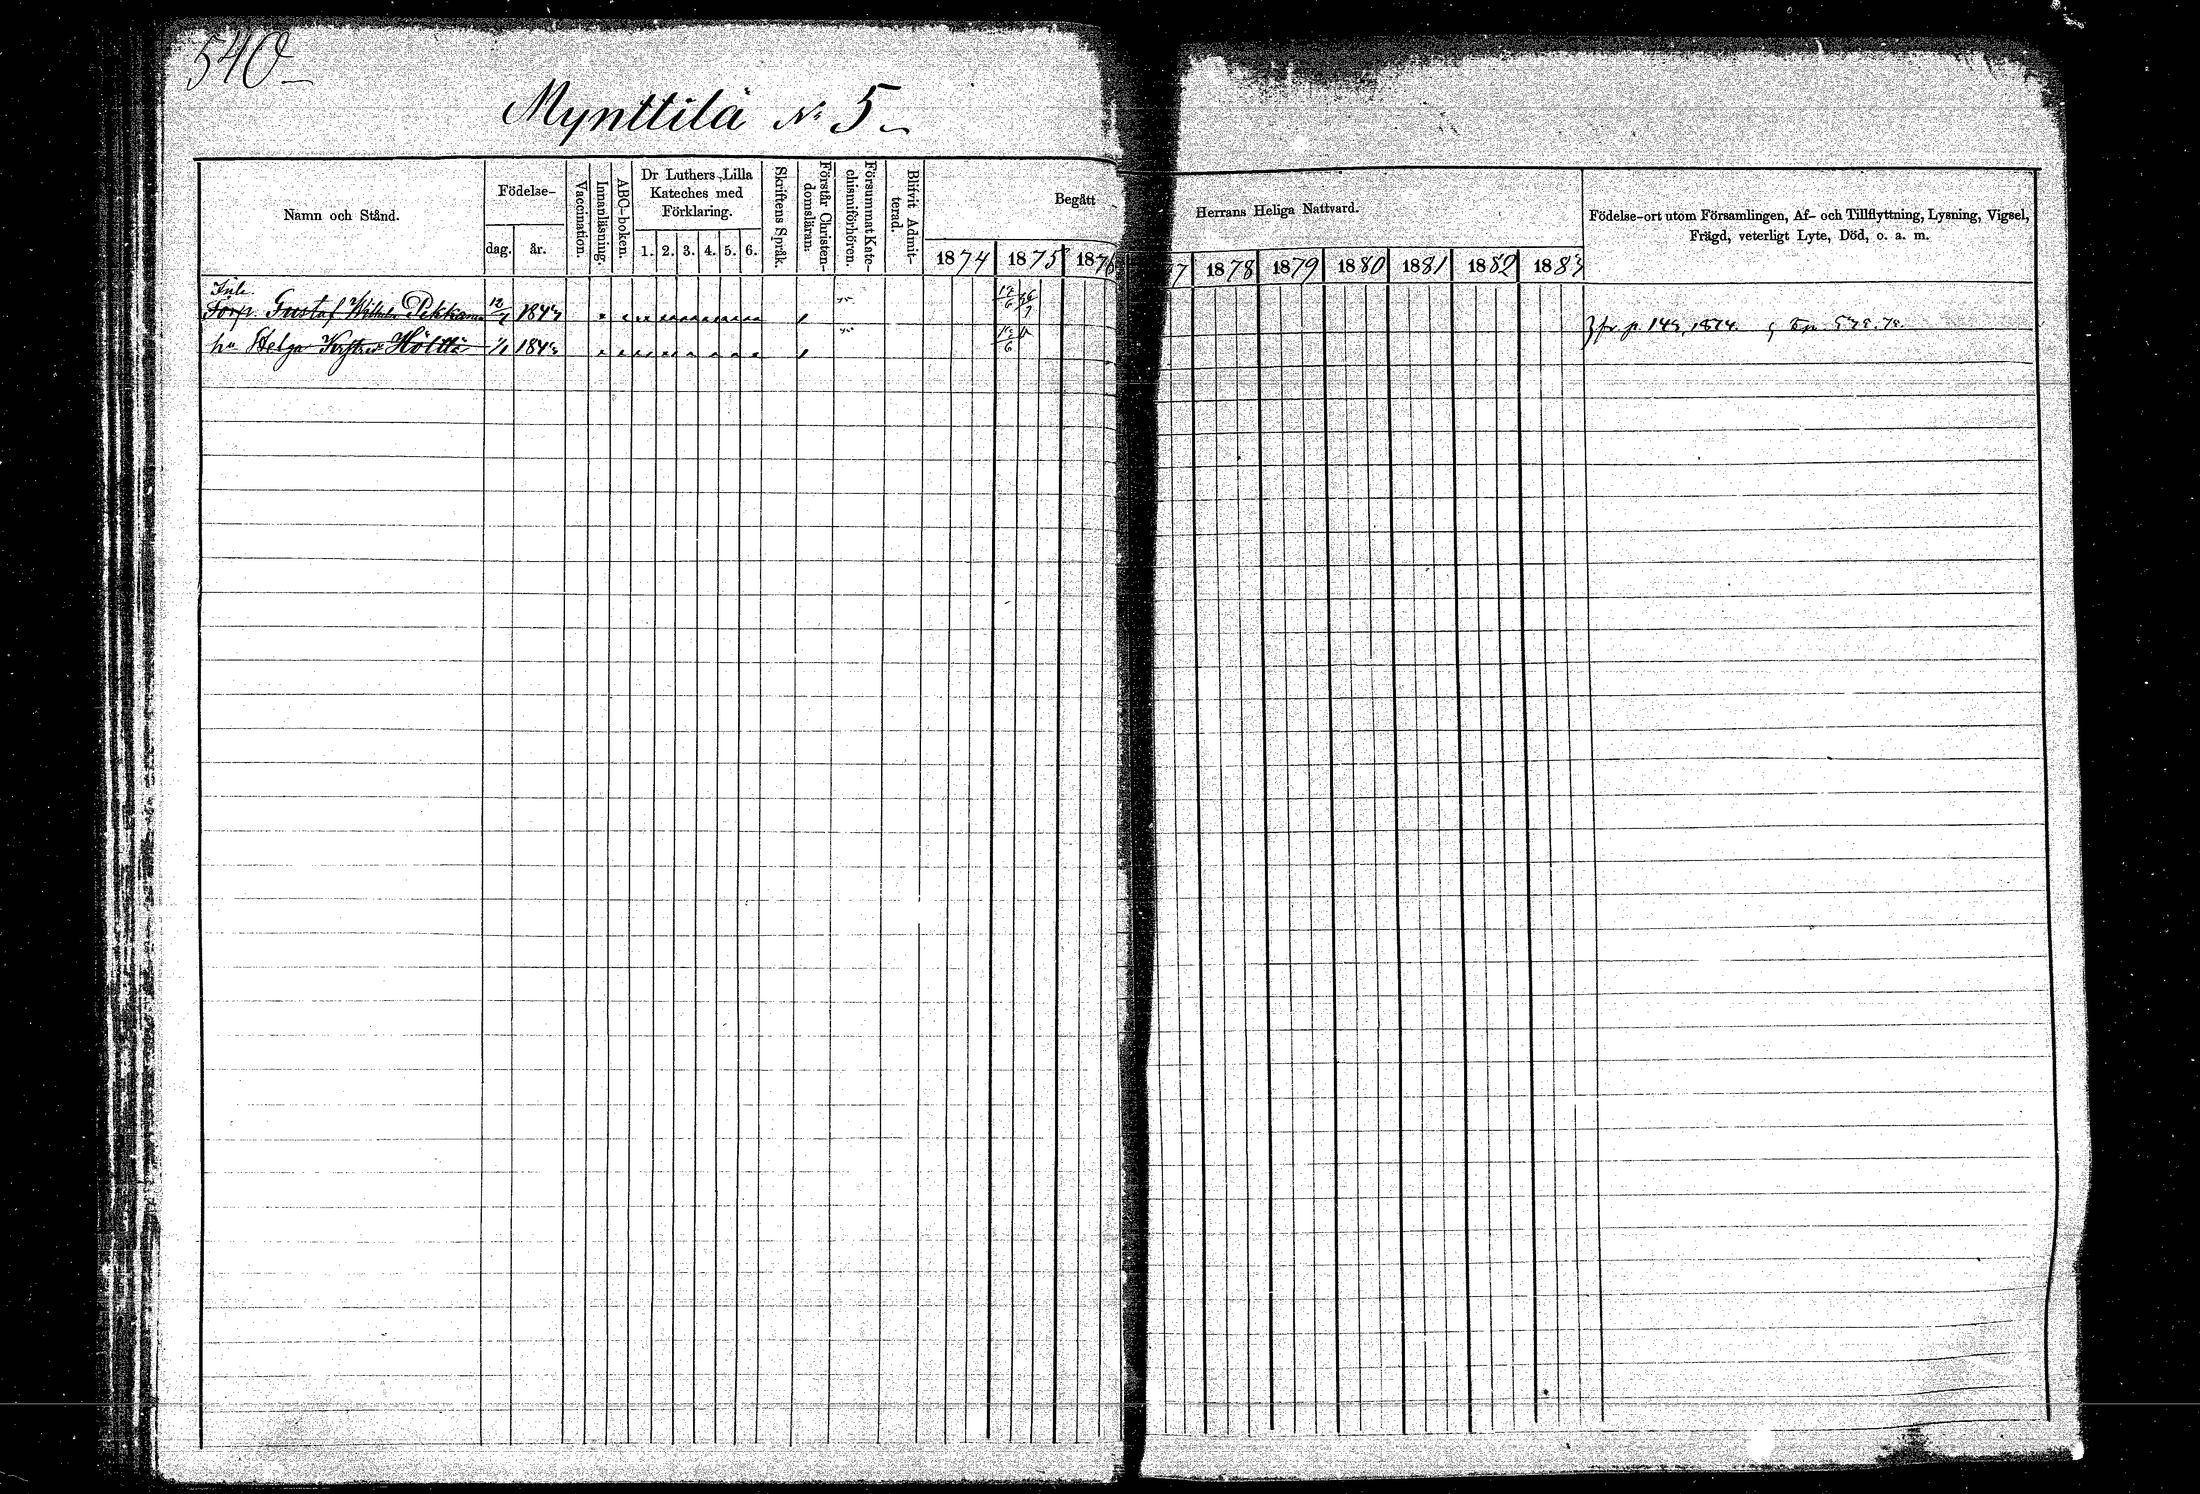 540
Mynttilä No 5
Namn och Stånd.
Födelse-
dag.
år.
Vaccination.
Innanläsning.
ABC-boken.
Dr Luthers Lilla
Kateches med
Förklaring.
1. 2. 3. 4. 5. 6.
Skriftens Språk.
Förstår Christen-
domsläran.
Försummat Kate-
chismiförhören.
Blifvit Admit-
terad.
Begått
Herrans Heliga Nattvard.
1874 1875 1876 7 1878 1879 1880 1881 1882 1883
Födelse-ort utom Församlingen, Af- och Tillflyttning, Lysning, Vigsel,
Frägd, veterligt Lyte, Död, o. a. m.
Inh.
Torp. Gustaf Wilhelm 12/7 1843
hu Helga Höltta 1/1 1843
fr. p. 143, 1874.